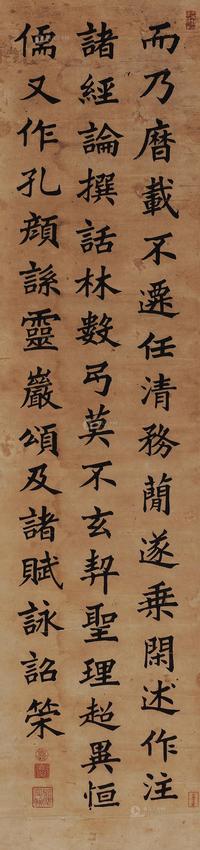 而乃曆載不遷任清務蕳遂乗閑述作注
諸經論撰話林数弓莫不玄契聖理超異恒
儒又作孔顔誄靈巖頌及諸賦詠詔策